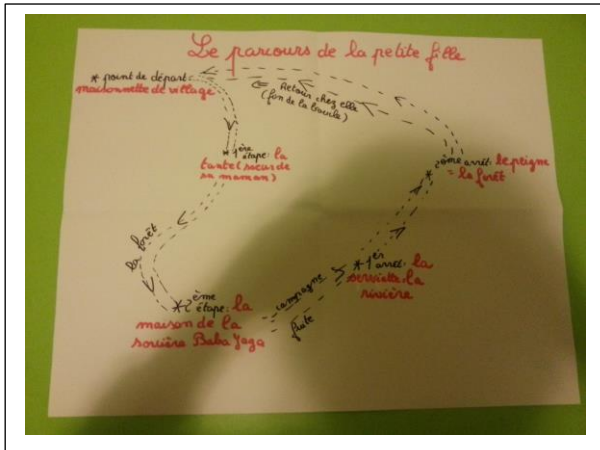 Le parcours de la petite fille
* point de départ:
maisonnette de village
Retour chez elle
(fin de la boucle)
* 1ère
étape: la
tante (soeur de
sa maman)
la forêt
* 2ème
étape: la
maison de la
sorcière Baba Jaga
campagne
fuite
* 1er
arrêt: la
serviette = la
rivière
* 2ème arrêt: le peigne
= la forêt